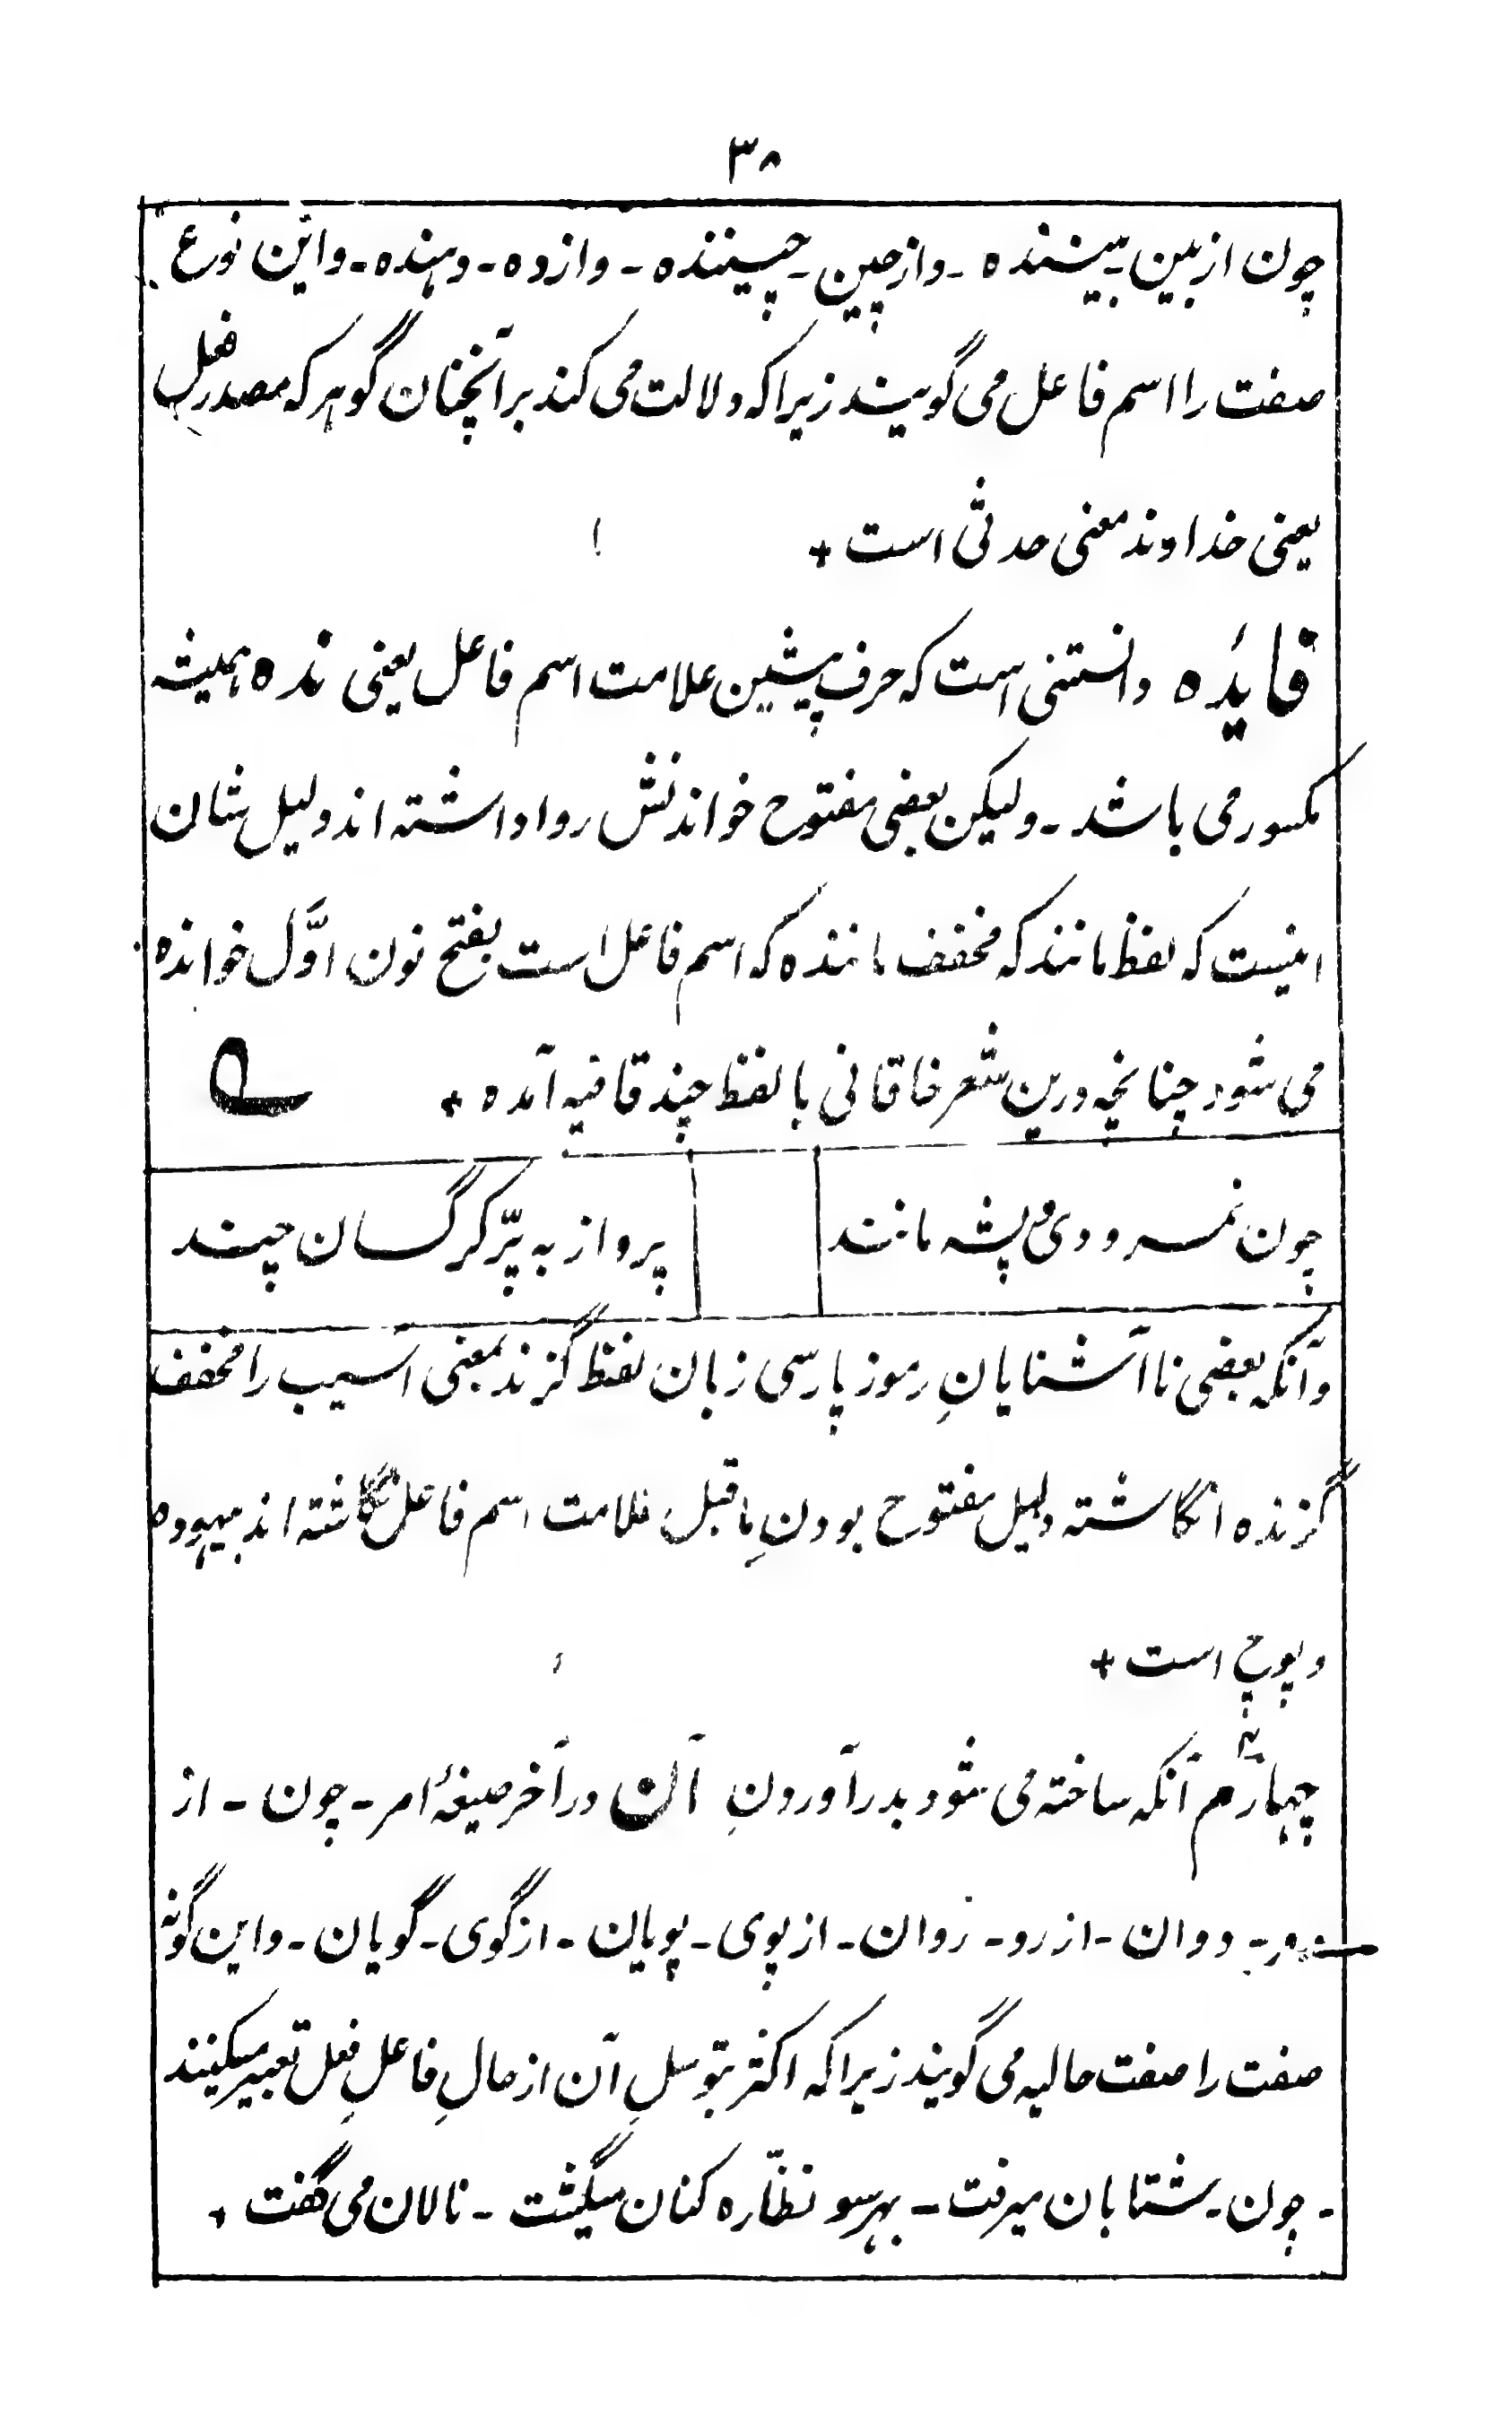 ۳۸
چون از بین - بیننده - و از چین - چیننده - و از ده - دهنده - و این نوع
صفت را اسم فاعل می گویند زیرا که دلالت می کند بر آنچنان گوهر که مصدر فعل
یعنی خداوند معنی حدثی است +
فایٔده دانستنی است که حرف پیشین علامت اسم فاعل یعنی نده همیشه
مکسور می باشد - ولیکن بعضی مفتوح خواندنش روا داشته اند دلیل شان
اینست که لفظ مانند که مخفف ماننده که اسم فاعل است بفتح نون اوّل خوانده
می شود چنانچه درین شعر خاقانی با لفظ چند قافیه آمده +
چون نمرودی پشه مانند
پرواز به پرّ کرگسان چند
و آنکه بعضی ناآشنایانِ رموز پارسی زبان لفظ گزند بمعنی آسیب را مخفف
گزنده انگاشته دلیل مفتوح بودنِ ماقبل علامت اسم فاعل نگاشته اند بیهوده
و پوچ است +
چهارم آنکه ساخته می شود بدر آوردنِ آن در آخر صیغهٔ امر - چون - از
دو - دوان - از رو - روان - از پوی - پویان - از گوی - گویان - و این گونه
صفت را صفت حالیه می گویند زیرا که اکثر بتوسلِ آن از حالِ فاعلِ فعل تعبیر میکنند
- چون - شتابان میرفت - بهر سو نظّاره کنان میگشت - نالان می گفت +